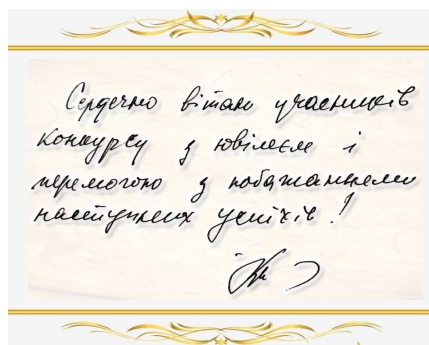 Сердечно вітаю учасників
конкурсу з ювілеєм і
перемогою з побажаннями
наступних успіхів!